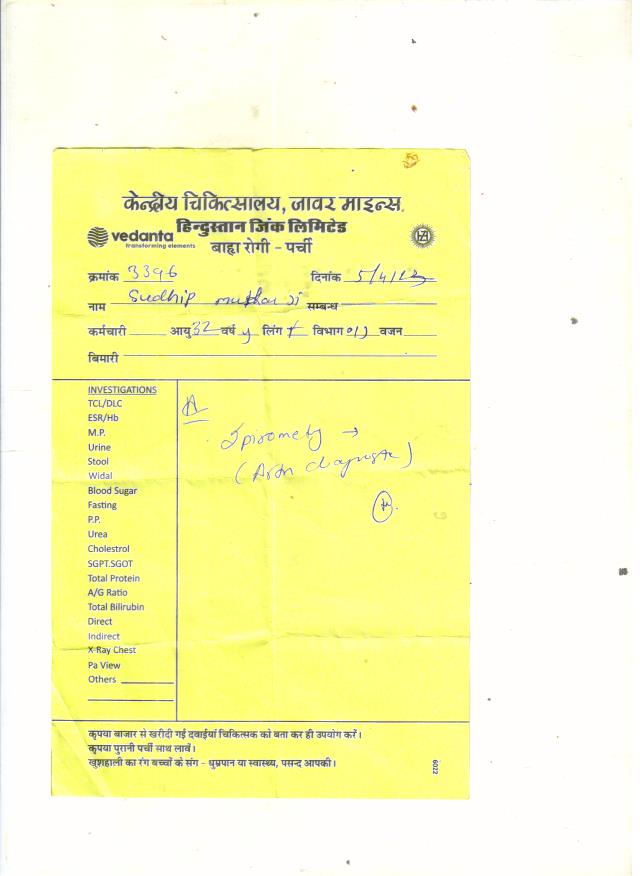 केन्द्रीय चिकित्सालय, जावर माइन्स.
vedanta
transforming elements
हिन्दुस्तान जिंक लिमिटेड
बाह्य रोगी - पर्ची
क्रमांक 3396 दिनांक 5/4/23
नाम Sudhip सम्बन्ध
कर्मचारी आयु 32 वर्ष y लिंग विभाग वजन
बिमारी
INVESTIGATIONS
TCL/DLC
ESR/Hb
M.P.
Urine
Stool
Widal
Blood Sugar
Fasting
P.P.
Urea
Cholestrol
SGPT.SGOT
Total Protein
A/G Ratio
Total Bilirubin
Direct
Indirect
X Ray Chest
Pa View
Others
Spirometry →
कृपया बाजार से खरीदी गई दवाईयां चिकित्सक को बता कर ही उपयोग करें।
कृपया पुरानी पर्ची साथ लावें।
खुशहाली का रंग बच्चों के संग - धुम्रपान या स्वास्थ्य, पसन्द आपकी।
6022